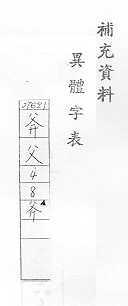 補充資料
異體字表
斧
父
4
8